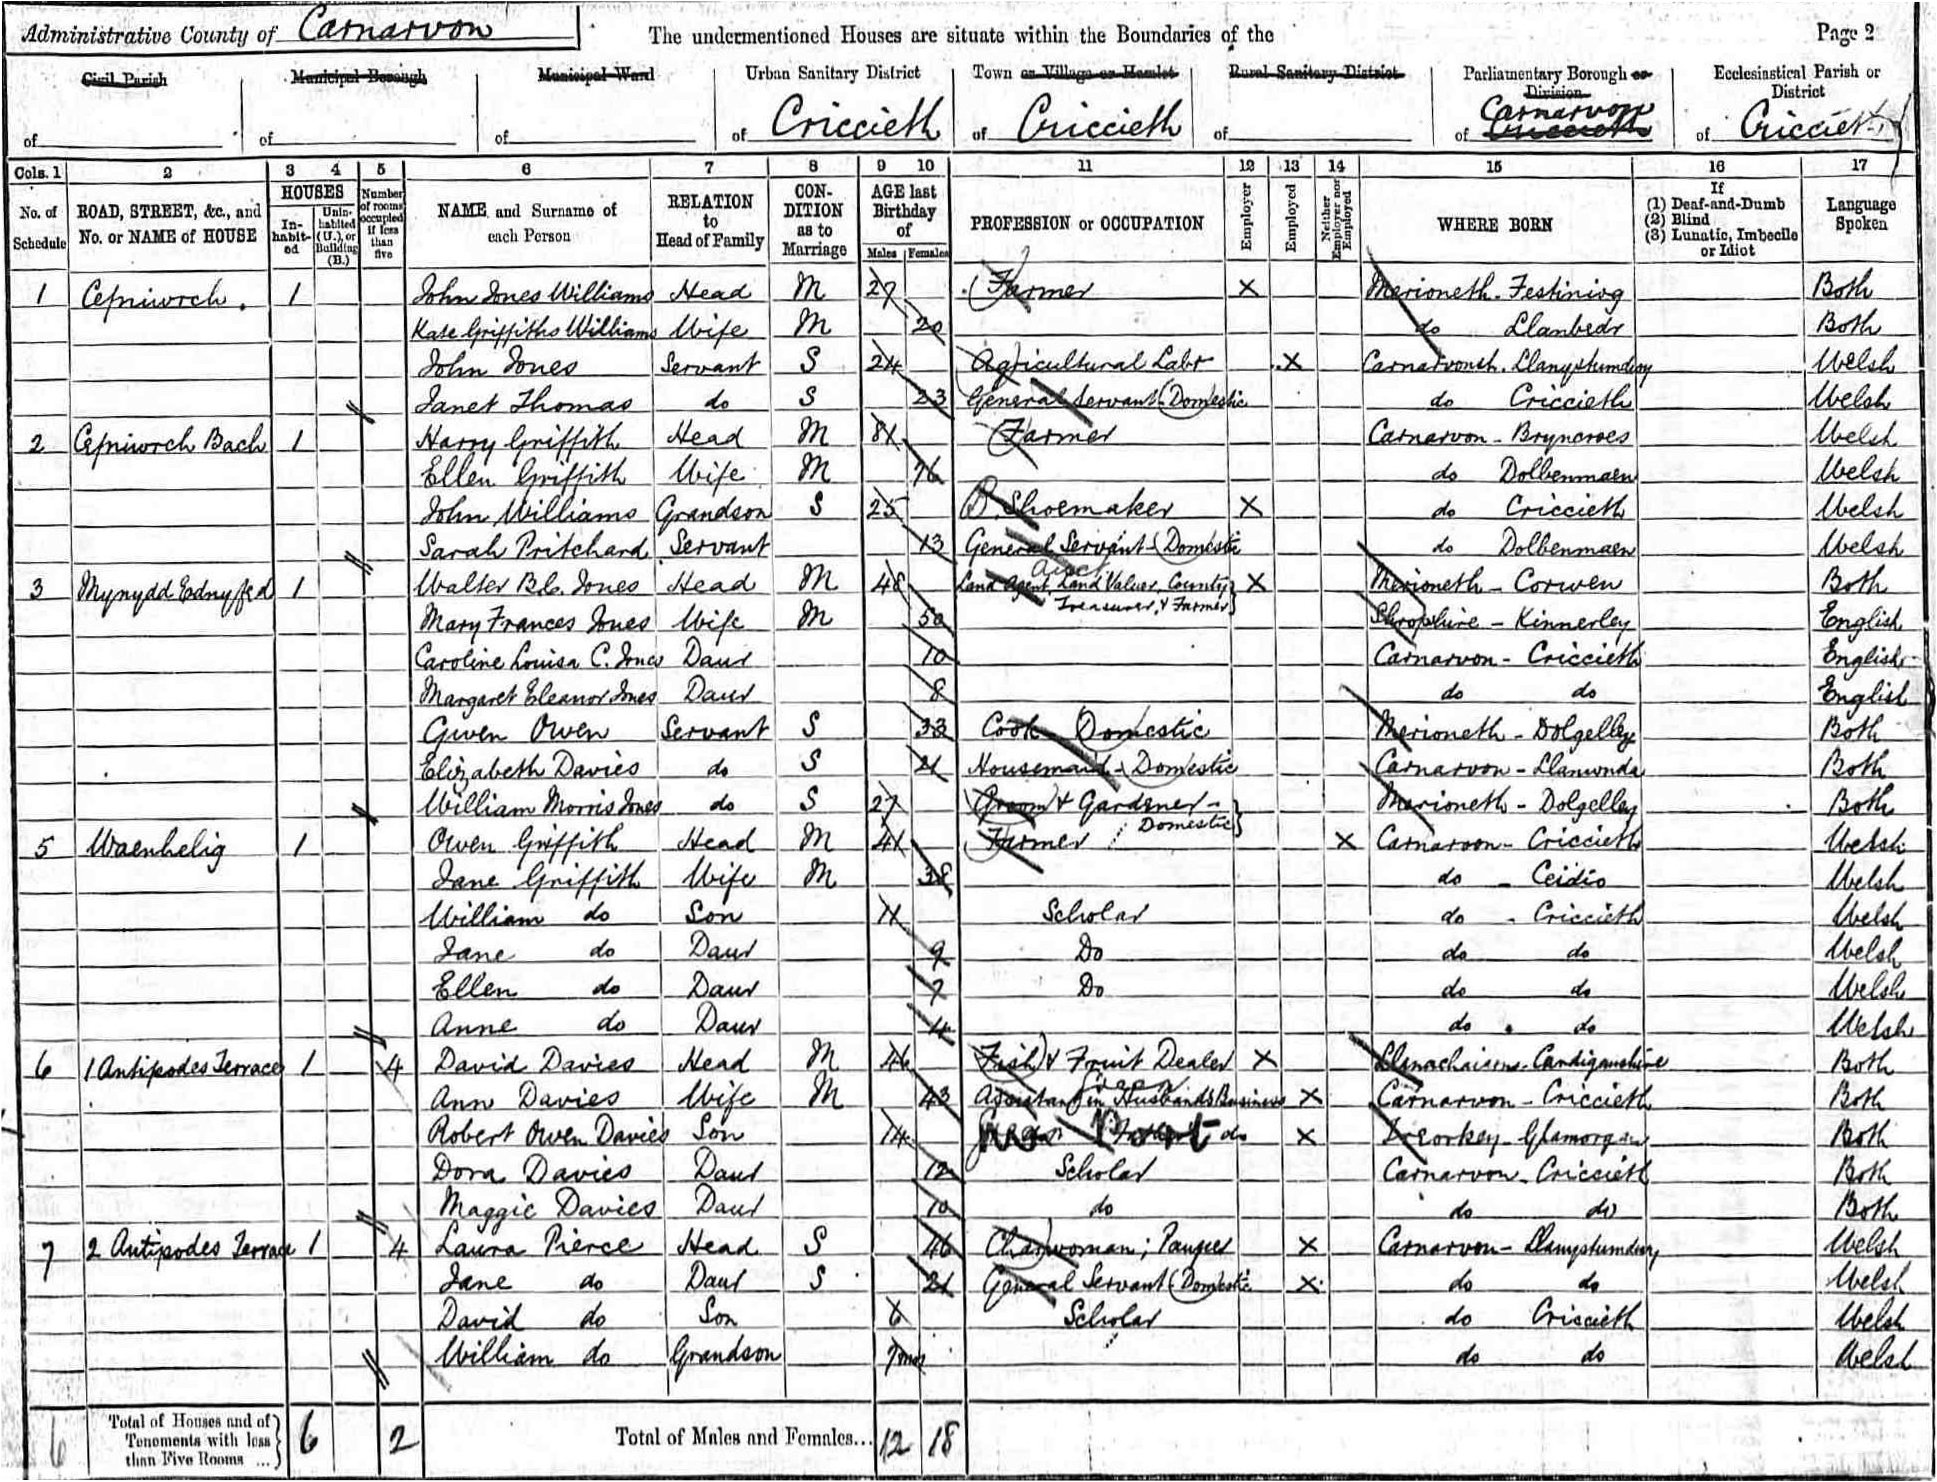 Administrative County of Carnarvon The undermentioned Houses are situate within the Boundaries of the Page 2
Civil Parish Municipal Borough Municipal Ward Urban Sanitary District Town or Village or Hamlet Rural Sanitary District Parliamentary Borough or Division Ecclesiastical Parish or District
of of of of Criccieth of Criccieth of of Carnarvon Criccieth of Criccieth
Cols. 1 2 3 4 5 6 7 8 9 10 11 12 13 14 15 16 17
No. of Schedule ROAD, STREET, &c., and No. or NAME of HOUSE HOUSES Inhabited Uninhabited (U.), or Building (B.) Number of rooms occupied if less than five NAME and Surname of each Person RELATION to Head of Family CONDITION as to Marriage AGE last Birthday of Males Females PROFESSION or OCCUPATION Employer Employed Neither Employer nor Employed WHERE BORN If (1) Deaf-and-Dumb (2) Blind (3) Lunatic, Imbecile or Idiot Language Spoken
1 Cefniwrch 1 John Jones Williams Head M 27 Farmer X Merioneth - Festiniog Both
Kate Griffiths Williams Wife M 20 do Llanbedr Both
John Jones Servant S 24 Agricultural Labr X Carnarvonsh. Llanystumdwy Welsh
Janet Thomas do S 23 General Servant (Domestic do Criccieth Welsh
2 Cefniwrch Bach 1 Harry Griffith Head M 81 Farmer Carnarvon - Bryncroes Welsh
Ellen Griffith Wife M 76 do Dolbenmaen Welsh
John Williams Grandson S 25 Shoemaker X do Criccieth Welsh
Sarah Pritchard Servant 13 General Servant (Domestic do Dolbenmaen Welsh
3 Mynydd Ednyfed 1 Walter B.C. Jones Head M 48 Land Agent, Land Valuer, County Treasurer, & Farmer} X Merioneth - Corwen Both
Mary Frances Jones Wife M 50 Shropshire - Kinnerley English
Caroline Louisa C. Jones Daur 10 Carnarvon - Criccieth English
Margaret Eleanor Jones Daur 8 do do English
Gwen Owen Servant S 33 Cook (Domestic Merioneth - Dolgelley Both
Elizabeth Davies do S 21 Housemaid - (Domestic Carnarvon - Llanwnda Both
William Morris Jones do S 27 Groom & Gardener - Domestic} Merioneth - Dolgelley Both
5 Waenhelig 1 Owen Griffith Head M 41 Farmer X Carnarvon - Criccieth Welsh
Jane Griffith Wife M 38 do - Ceidio Welsh
William do Son 11 Scholar do - Criccieth Welsh
Jane do Daur 9 Do do do Welsh
Ellen do Daur 7 Do do do Welsh
Anne do Daur 4 do do Welsh
6 1 Antipodes Terrace 1 4 David Davies Head M 46 Fish & Fruit Dealer X Cardiganshire Both
Ann Davies Wife M 43 Assistant in Husband's Business X Carnarvon - Criccieth Both
Robert Owen Davies Son 14 do X Treorkey - Glamorgan Both
Dora Davies Daur 12 Scholar Carnarvon - Criccieth Both
Maggie Davies Daur 10 do do do Both
7 2 Antipodes Terrace 1 4 Laura Pierce Head S 46 Charwoman; Pauper X Carnarvon - Llanystumdwy Welsh
Jane do Daur S 21 General Servant (Domestic X do do Welsh
David do Son 6 Scholar do Criccieth Welsh
William do Grandson 7mos do do Welsh
6 Total of Houses and of Tenements with less than Five Rooms ...} 6 2 Total of Males and Females... 12 18